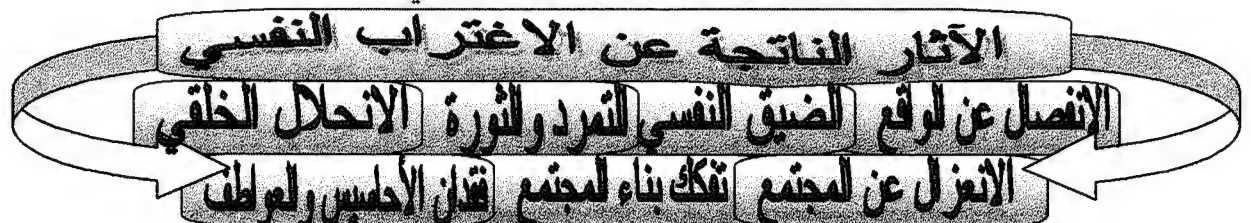 الآثار الناتجة عن الاغتراب النفسي
الانفصال عن الواقع الضيق النفسي التمرد والثورة الانحلال الخلقي
الانعزال عن المجتمع تفكك بناء المجتمع فقدان الأحاسيس والعواطف